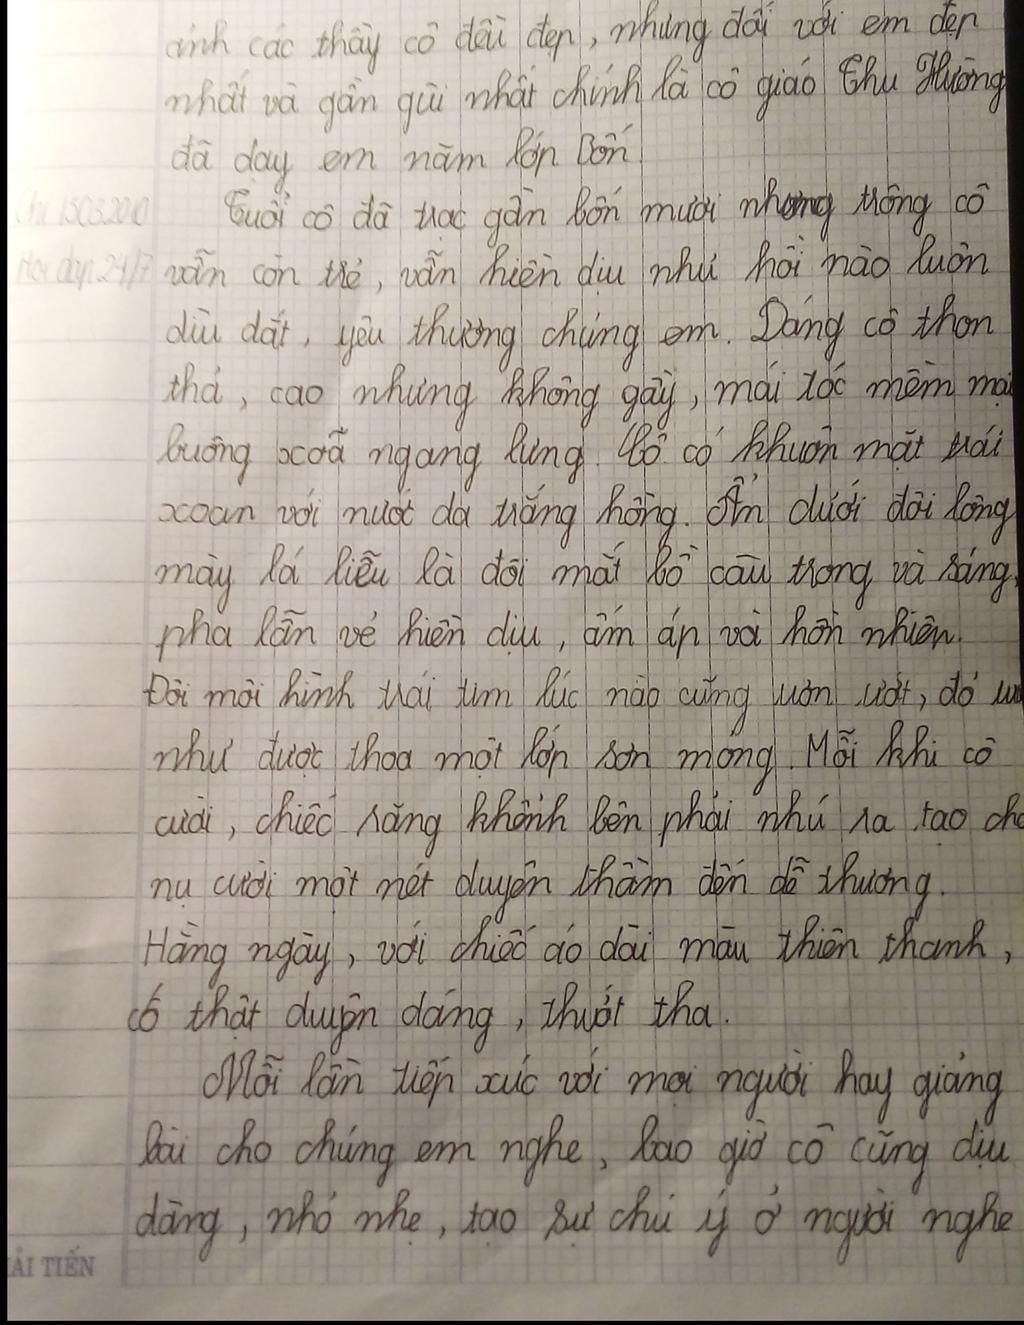 ảnh các thầy cô đều đẹp, nhưng đối với em đẹp
nhất và gần gũi nhất chính là cô giáo Thu Hường
đã dạy em năm lớp Bốn
Tuổi cô đã trạc gần bốn mươi nhưng trông cô
vẫn còn trẻ, vẫn hiền dịu như hồi nào luôn
dìu dắt, yêu thương chúng em. Dáng cô thon
thả, cao nhưng không gầy, mái tóc mềm mại
buông xoã ngang lưng. Cô có khuôn mặt trái
xoan với nước da trắng hồng. Ẩn dưới đôi lông
mày lá liễu là đôi mắt bồ câu trong và sáng,
pha lẫn vẻ hiền dịu, ấm áp và hồn nhiên.
Đôi môi hình trái tim lúc nào cũng ươn ướt, đỏ
như được thoa một lớp son mỏng. Mỗi khi cô
cười, chiếc răng khểnh bên phải nhú ra tạo cho
nụ cười một nét duyên thầm đến dễ thương.
Hằng ngày, với chiếc áo dài màu thiên thanh,
cô thật duyên dáng, thướt tha.
Mỗi lần tiếp xúc với mọi người hay giảng
bài cho chúng em nghe, bao giờ cô cũng dịu
dàng, nhỏ nhẹ, tạo sự chú ý ở người nghe
ẢI TIẾN